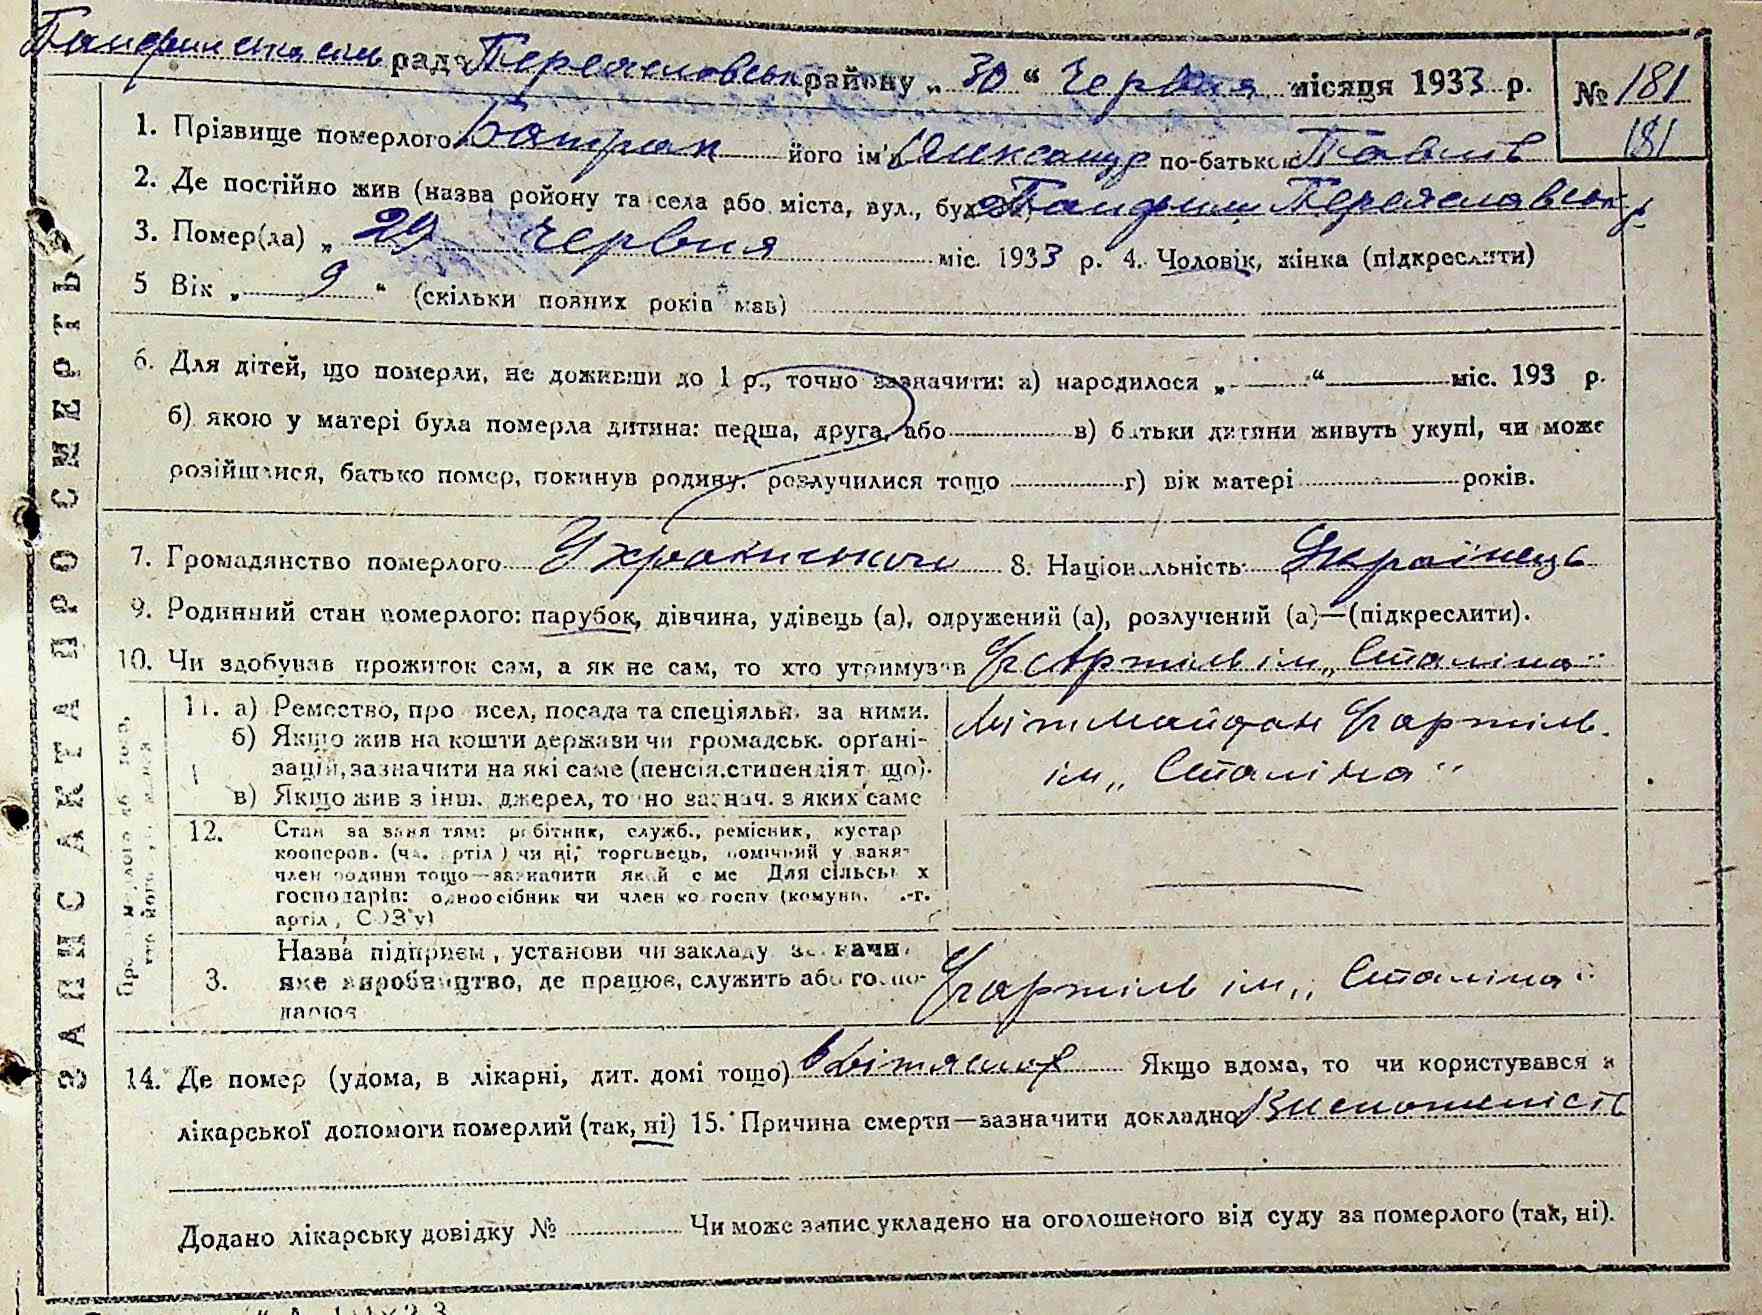 рада Переяславськ району „ 30 “ Червня місяця 1933 р. № 181
181
1. Прізвище померлого Батрак його ім'я Олександр по-батькові Павлов
2. Де постійно жив (назва ройону та села або міста, вул., буд. Панфили Переяславськ р.
3. Помер(ла) „ 29 Червня міс. 1933 р. 4. Чоловік, жінка (підкреслити)
5 Вік „ 9 “ (скільки повних років мав)
6. Для дітей, що померли, не доживши до 1 р., точно зазначити: а) народилося „ “ міс. 193 р.
б) якою у матері була померла дитина: перша, друга, або в) батьки дитяни живуть укупі, чи може
розійшлися, батько помер, покинув родину, розлучилися тощо г) вік матері років.
7. Громадянство померлого 8. Національність Українець
9. Родинний стан померлого: парубок, дівчина, удівець (а), одружений (а), розлучений (а)—(підкреслити).
10. Чи здобував прожиток сам, а як не сам, то хто утримував Артіль ім „ Сталіна “
ЗАПИС АКТА ПРО СМЕРТЬ
11. а) Ремество, про исел, посада та спеціяльн. за ними.
б) Якщо жив на кошти держави чи громадськ. орґані-
зацій, зазначити на які саме (пенсія, стипендія т що).
в) Якщо жив з інш. джерел, то но зазнач. з яких саме
Дітмайдан
ім „ Сталіна “
12. Стан за заня тям: робітник, служб., ремісник, кустар
кооперов. (чл. артіл ) чи ні, торговець, помічний у заня-
член родини тощо—зазначити який с ме Для сільськ х
господарів: одноосібник чи член ко госпу (комуни, .-г.
артіл , СОЗ'у)
3. Назва підприєм , установи чи закладу
яке виробництво, де працює, служить або госпо-
дарює
ім „ Сталіна “
14. Де помер (удома, в лікарні, дит. домі тощо) в дітяслях Якщо вдома, то чи користувався з
лікарської допомоги померлий (так, ні) 15. Причина смерти—зазначити докладно Виснаженість
Додано лікарську довідку № Чи може запис укладено на оголошеного від суду за померлого (так, ні).